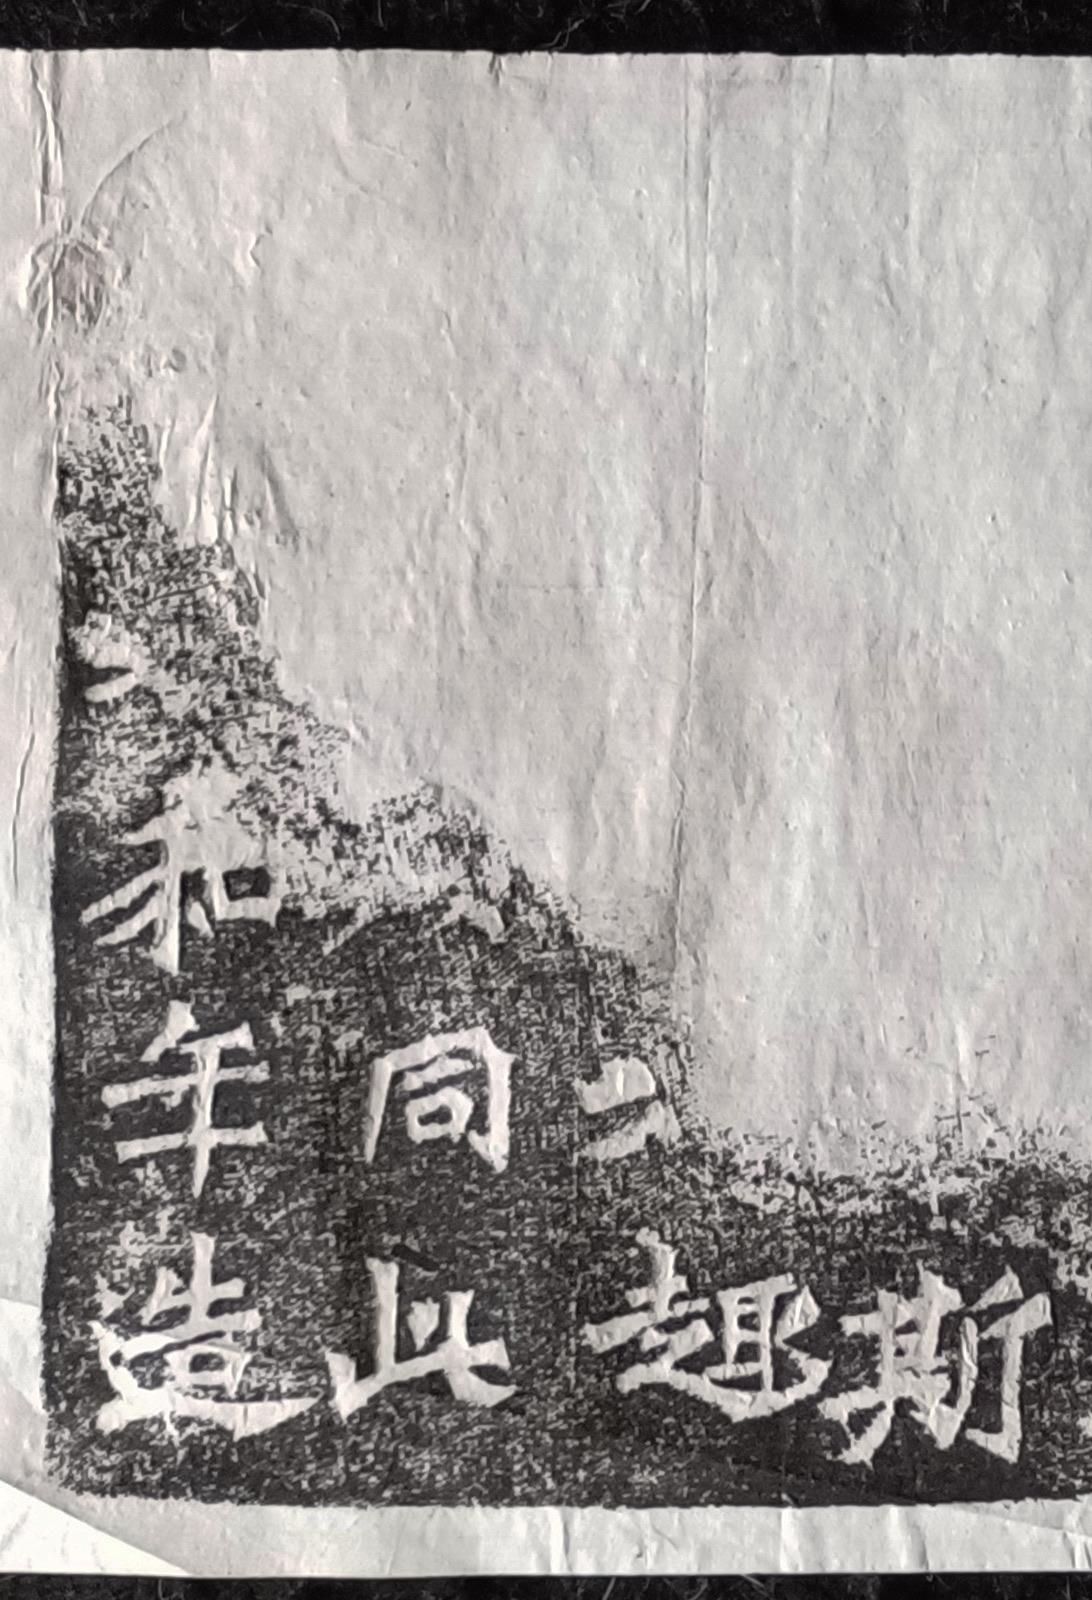 斯
趣
同此
和年造